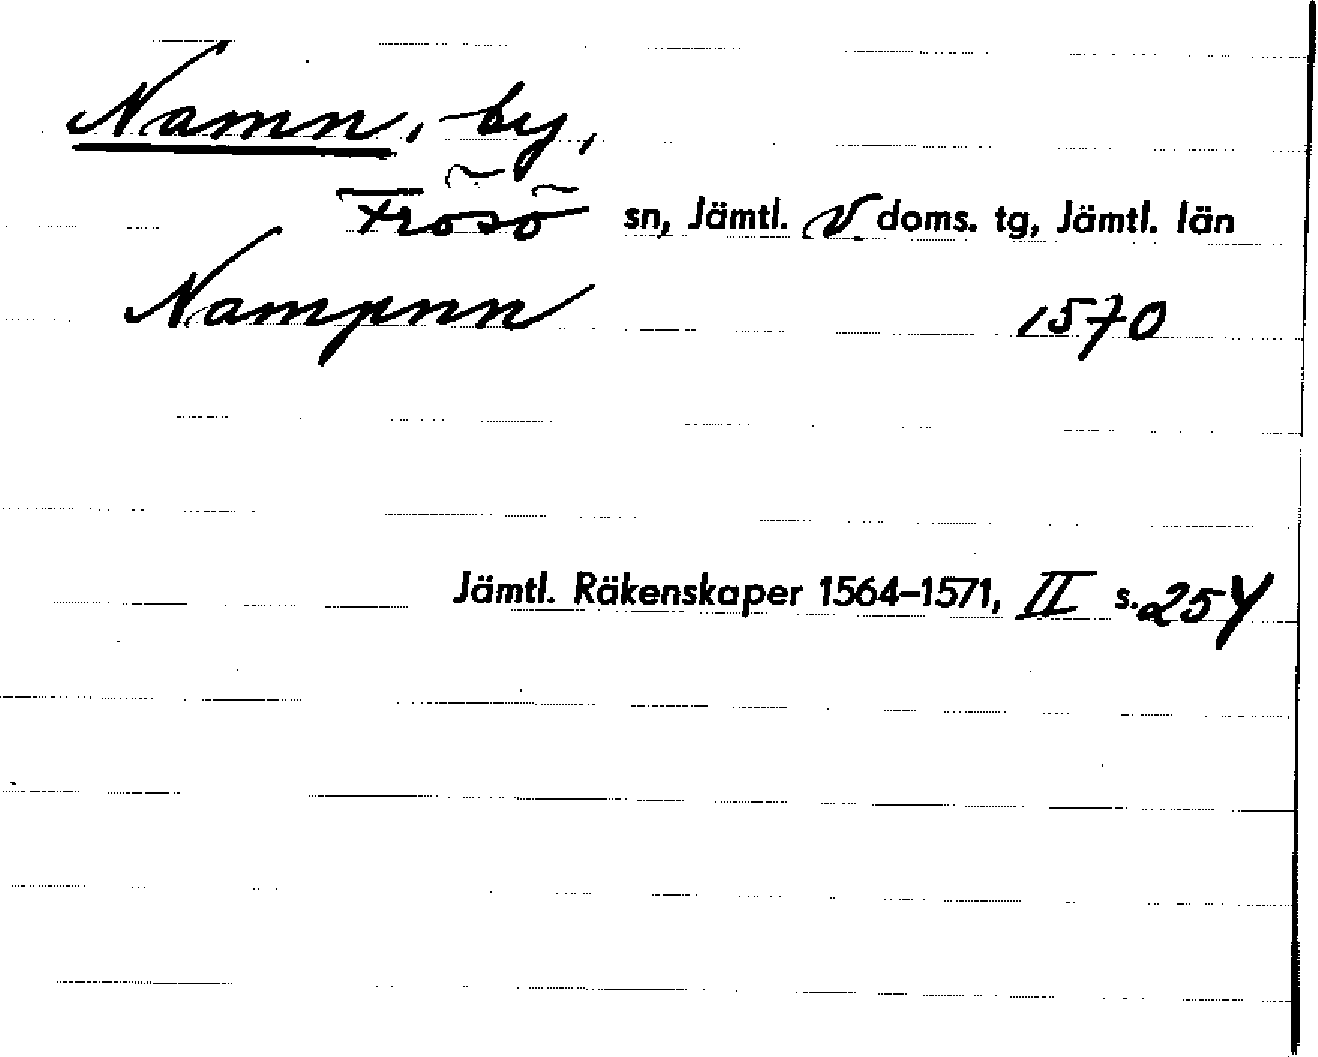 Namn, by,
Frösö sn, Jämtl. V doms. tg, Jämtl. län
Nampnn 1570
Jämtl. Räkenskaper 1564–1571, II s. 254